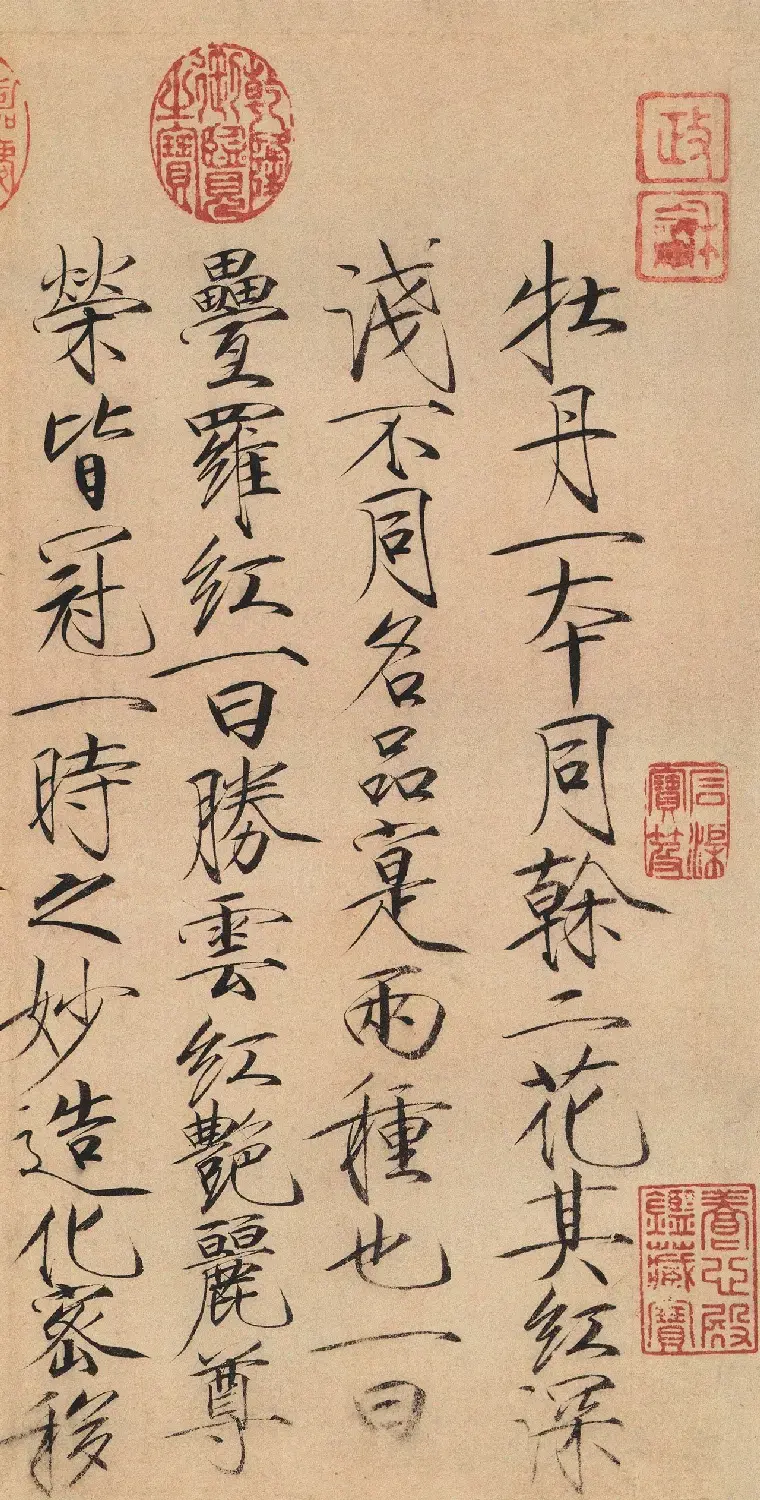 政
和
牡丹一本同榦二花其紅深
淺不同名品寔兩種也一曰
疊羅紅一曰勝雲紅艷麗尊
榮皆冠一時之妙造化密移
乾隆御覽之寶
石渠寶笈
養心殿鑑藏寶